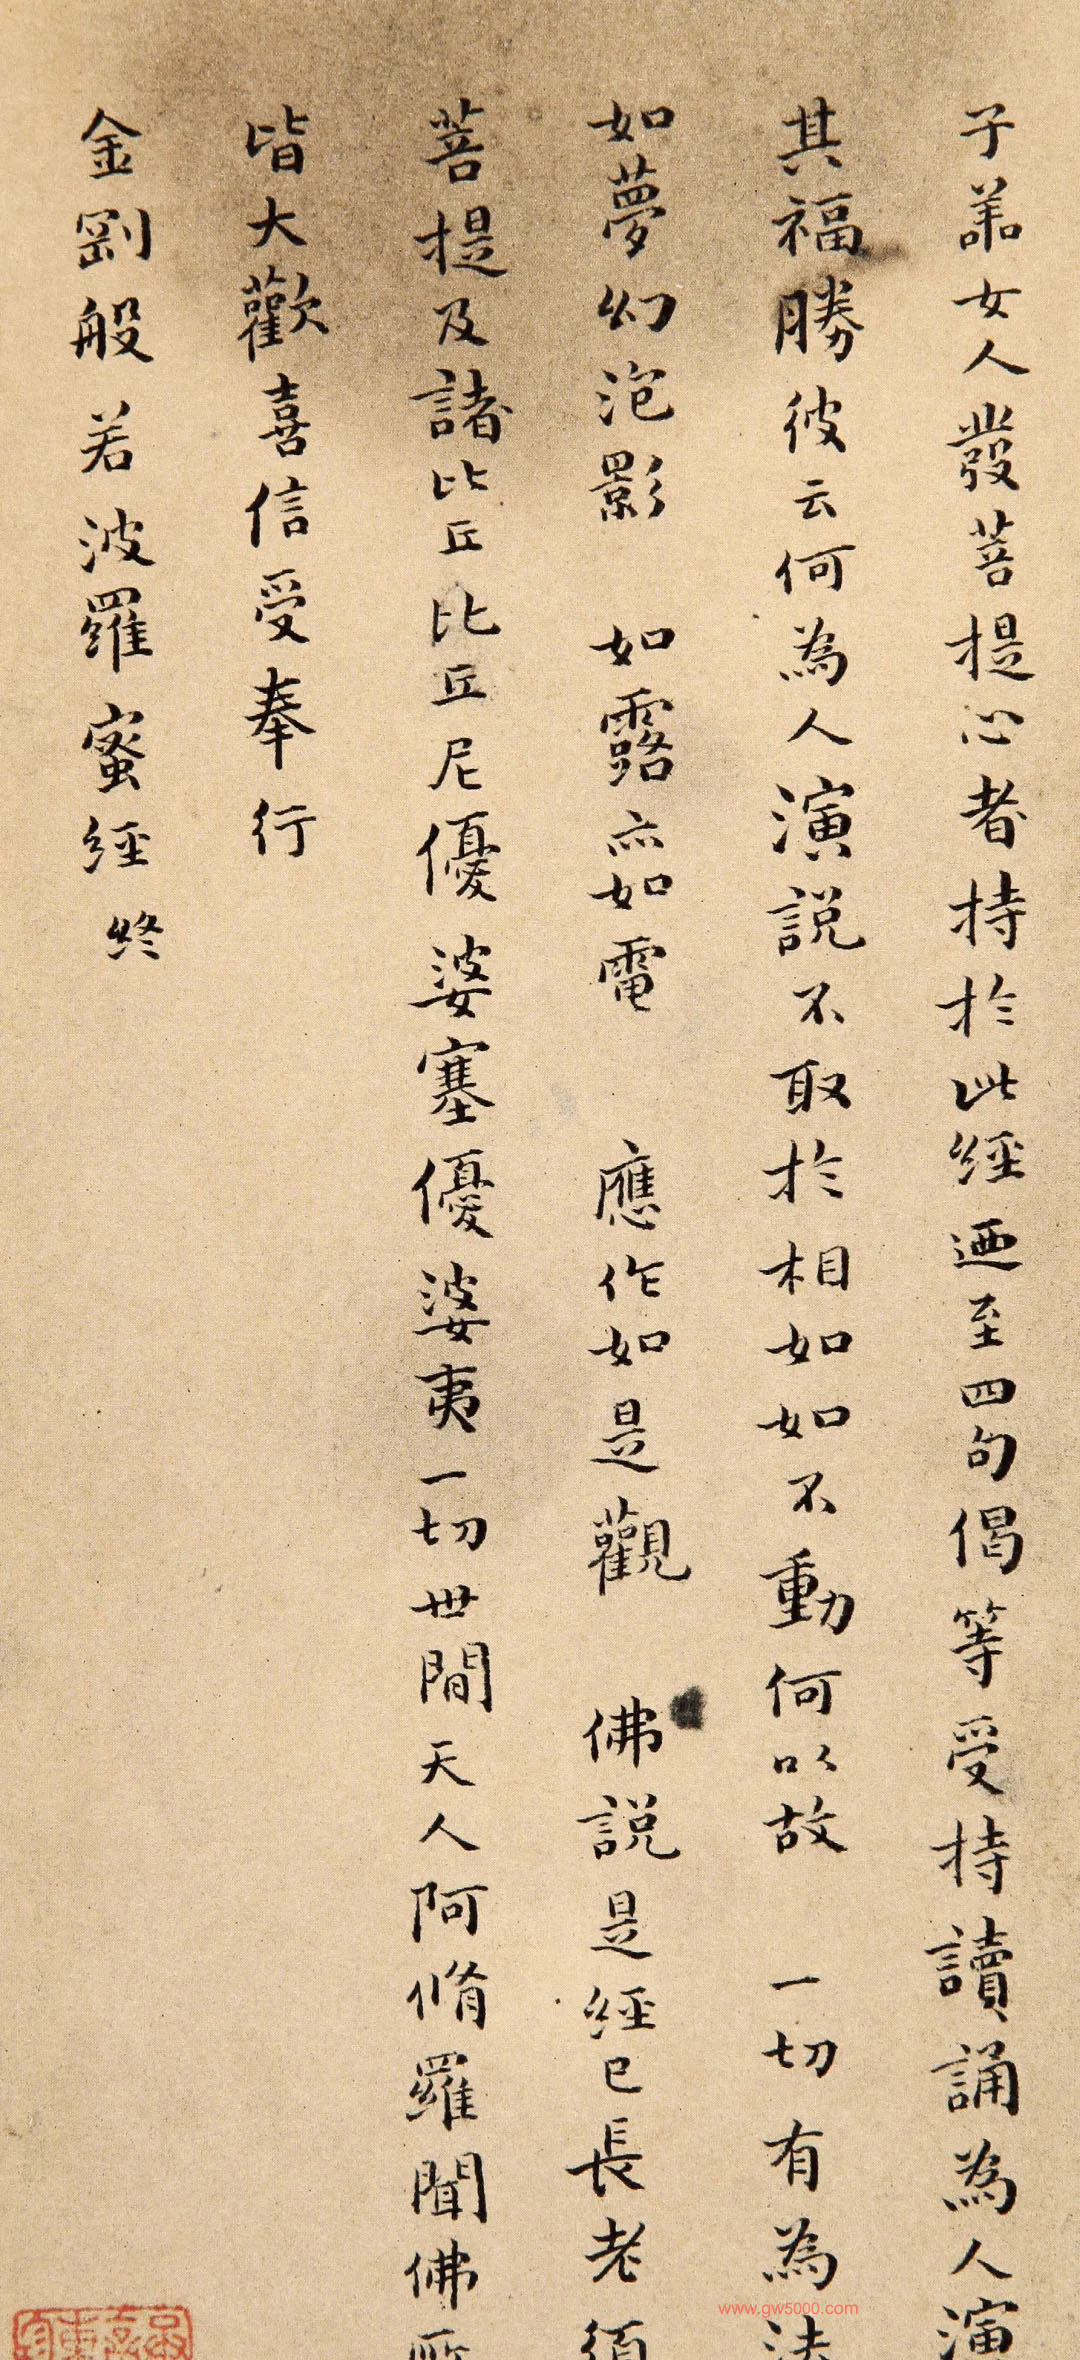 子善女人發菩提心者持於此經廼至四句偈等受持讀誦為人演
其福勝彼云何為人演說不取於相如如不動何以故 一切有為法
如夢幻泡影 如露亦如電 應作如是觀 佛說是經已長老須
菩提及諸比丘比丘尼優婆塞優婆夷一切世間天人阿脩羅聞佛所
皆大歡喜信受奉行
金剛般若波羅蜜經終
www.gw5000.com